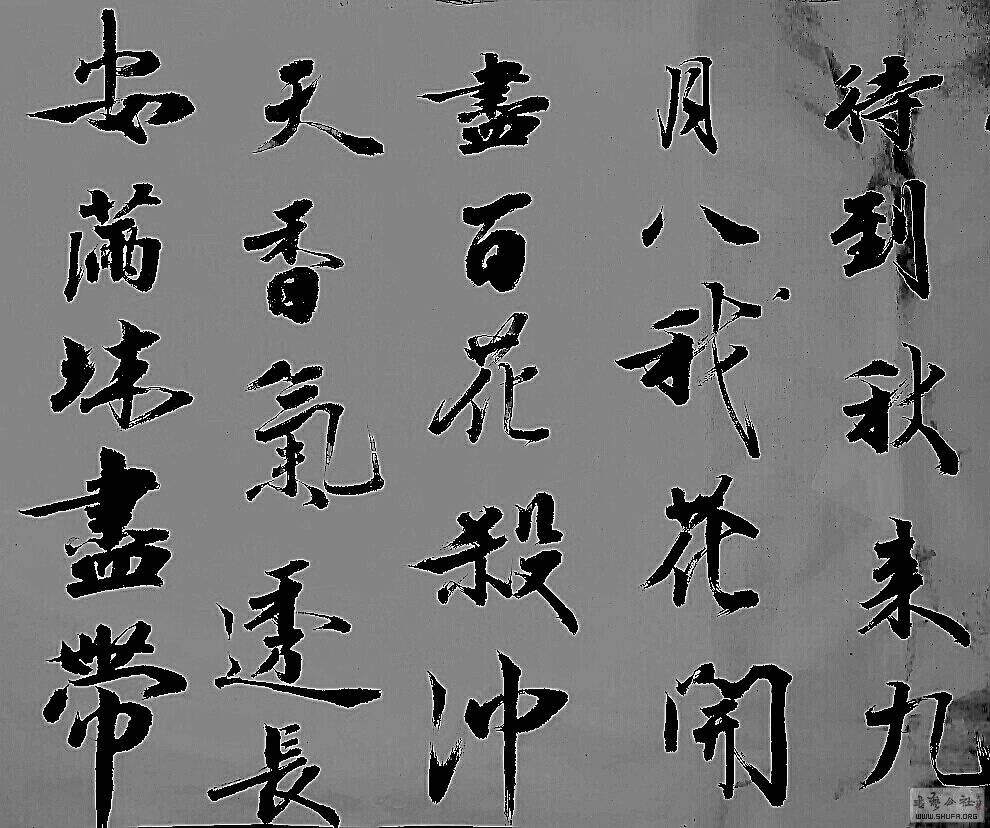 待到秋来九
月八我花開
盡百花殺沖
天香氣透長
安滿盡帶
書藝公社
WWW.SHUFA.ORG